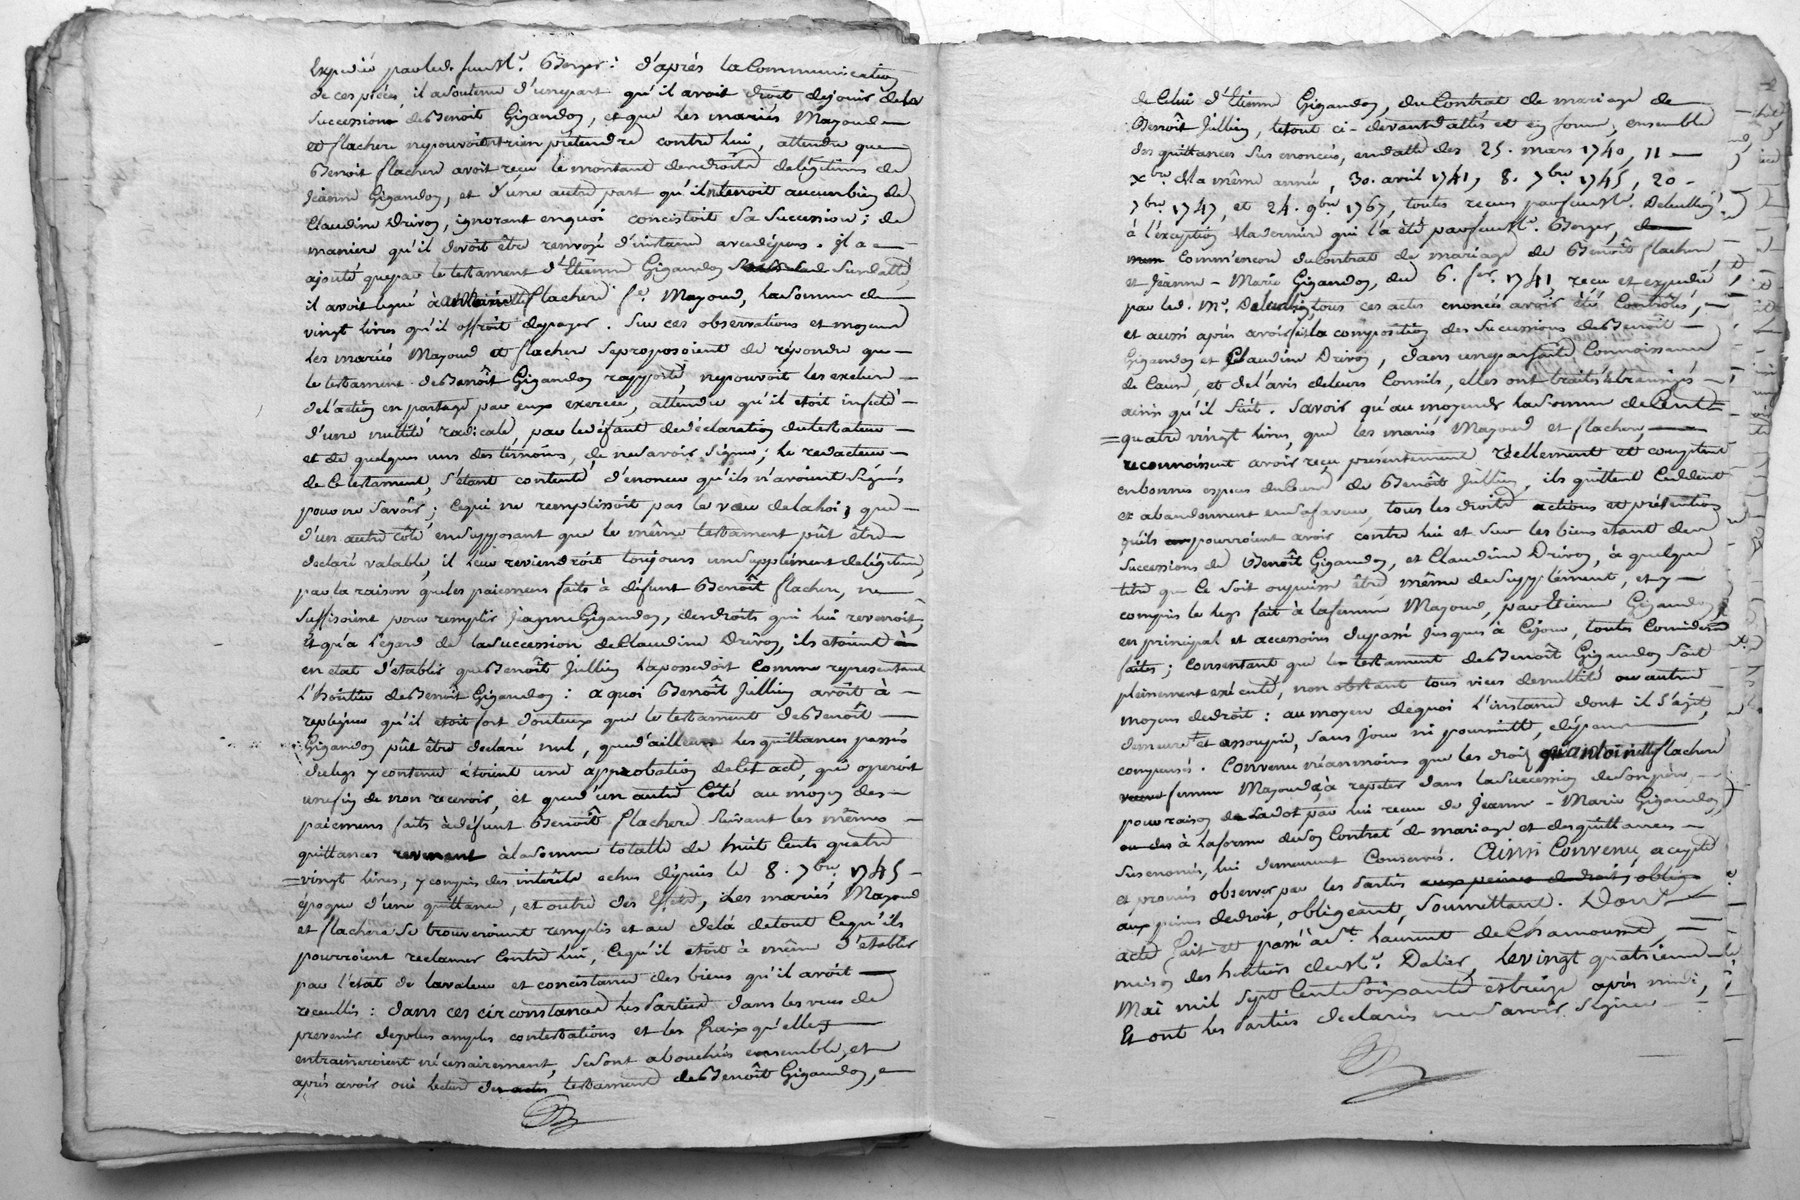 Expedié par led. feu Mr. Berger: d'après la Communication
de ces pièces, il a soutenu d'une part qu'il avoit droit de jouir de la
succession de Benoit Gigandon, et que les mariés Mayoud
et flachere ne pouvoient rien prétendre contre lui, attendu que
Benoit flachere avoit reçu le montant des droits de légitime de
Jeanne Gigandon, et d'une autre part qu'il ne tenoit aucun bien de
Claudine Drivon, ignorant en quoi concistoit sa succession; de
maniere qu'il devoit être renvoyé d'instance avec dépens. il a
ajouté que par le testament d'Etienne Gigandon susdatté,
il avoit legué à antoinette flachere fe. Mayoud, la somme de
vingt livres qu'il offroit de payer. Sur ces observations et moyens
les mariés Mayoud et flachere se proposoient de répondre que
le testament de Benoît Gigandon rapporté, ne pouvoit les exclure
de l'action en partage par eux exercée, attendu qu'il etoit infecté
d'une nullité radicale, par le défaut de déclaration du testateur
et de quelques uns des témoins, de ne savoir signer; le redacteur
de ce testament, s'étant contenté d'énoncer qu'ils n'avoient signés
pour ne savoir; ce qui ne remplissoit pas le vœu de la loi, que
d'un autre côté en supposant que le même testament pût être
declaré valable, il leur reviendroit toujours un supplément de légitime,
par la raison que les paiemens faits à défunt Benoît flachere, ne
suffisoient pour remplir Jeanne Gigandon, des droits qui lui revenoit,
et qu'a l'égard de la succession de Claudine Drivon, ils etoient
en etat d'etablir que Benoît Jullien la possedoit comme representant
l'hoirie de Benoît Gigandon: a quoi Benoît Jullien avoit à
repliquer qu'il etoit fort douteux que le testament de Benoît
Gigandon pût être declaré nul, que d'ailleurs les quittances passés
du legs y contenu étoient une approbation de cet acte, qui operoit
une fin de non recevoir, et que d'un autre Côté au moyen des
paiemens faits à défunt Benoît flachere suivant les mêmes
quittances revenant à la somme totalle de huit Cents quatre
=vingt livres, y compris des interêts echus depuis le 8. 7bre 1745
epoque d'une quittance, et outre des effets, les mariés Mayoud
et flachere se trouveroient remplis et au delà de tout ce qu'ils
pourroient reclamer Contre lui, ce qu'il etoit à même d'etablir
par l'état de la valeur et concistance des biens qu'il avoit
recueillis: dans ces circonstances les Parties dans les vues de
prevenir de plus amples contestations et les fraix qu'elles
entraineroient nécessairement, se sont abouchés ensemble, et
après avoir oui lecture du testament de Benoît Gigandon,
de Celui d'Etienne Gigandon, du Contrat de mariage de
Benoît Jullien, le tout ci-devant dattés et en forme, ensemble
des quittances sus enoncés, en datte des 25. mars 1740, 11
xbre de la même année, 30. avril 1741, 8. 7bre 1745, 20
7bre 1747, et 24. 9bre 1767, toutes recues par feu Mr.
à l'exception de la derniere qui l'a été par feu Mr. Berger,
comm'encore du Contrat de mariage de Benoît flachere
et Jeanne-Marie Gigandon, du 6. fer. 1741, recu et expedié
par led. Mr. tous ces actes enoncés avoir été Controlés,
et aussi après avoir fait la composition des successions de Benoît
Gigandon et Claudine Drivon, dans une parfaite Connoissance
de Cause, et de l'avis de leurs Conseils, elles ont traités et transigés
ainsi qu'il suit. Savoir qu'au moyen de la somme de Cent
=quatre vingt livres, que les mariés Mayoud et flachere,
reconnoissent avoir reçu présentement réellement et comptant
en bonnes especes du Cours de Benoît Jullien, ils quittent Cedent
et abandonnent en sa faveur, tous les droits actions et prétentions
qu'ils pourroient avoir contre lui et sur les biens etant des
successions de Benoît Gigandon, et Claudine Drivon, à quelque
titre que ce soit ou puisse être même de supplément, et y
compris le legs fait à la femme Mayoud, par Etienne Gigandon,
en principal et accessoires du passé jusques à ce jour, toutes
faites; Consentant que le testament de Benoît Gigandon soit
pleinement exécuté, non obstant tous vices de nullité ou autres
moyens de droit: au moyen de quoi l'instance dont il s'agit,
demeure et assoupie, sans jour ni poursuitte, dépens
compensés. Convenu néanmoins que les droits qu'antoinette flachere
femme Mayoud a à repeter dans la succession de son père,
pour raison de la dot par lui reçue de Jeanne-Marie Gigandon,
à la forme de son Contrat de mariage et des quittances
sus enoncés, lui demeurent Conservés. Ainsi Convenu, accepté
et promis observer par les Parties
aux peines de droit, obligeant, soumettant. Dont
acte fait et passé à St. Laurent de Chamousset,
maison des heritiers de Mr. Dalier, le vingt quatrieme
Mai mil sept Cent soixante et treize après midi,
Et ont les Parties declarés ne savoir signer